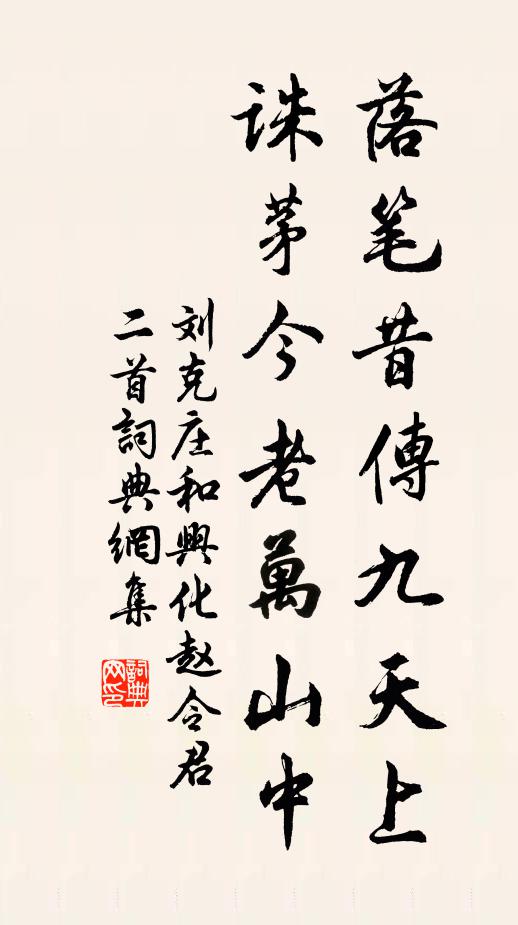 落笔昔傳九天上
誅茅今老萬山中
刘克庄和興化赵令君
二首詞典網集
詞典网印